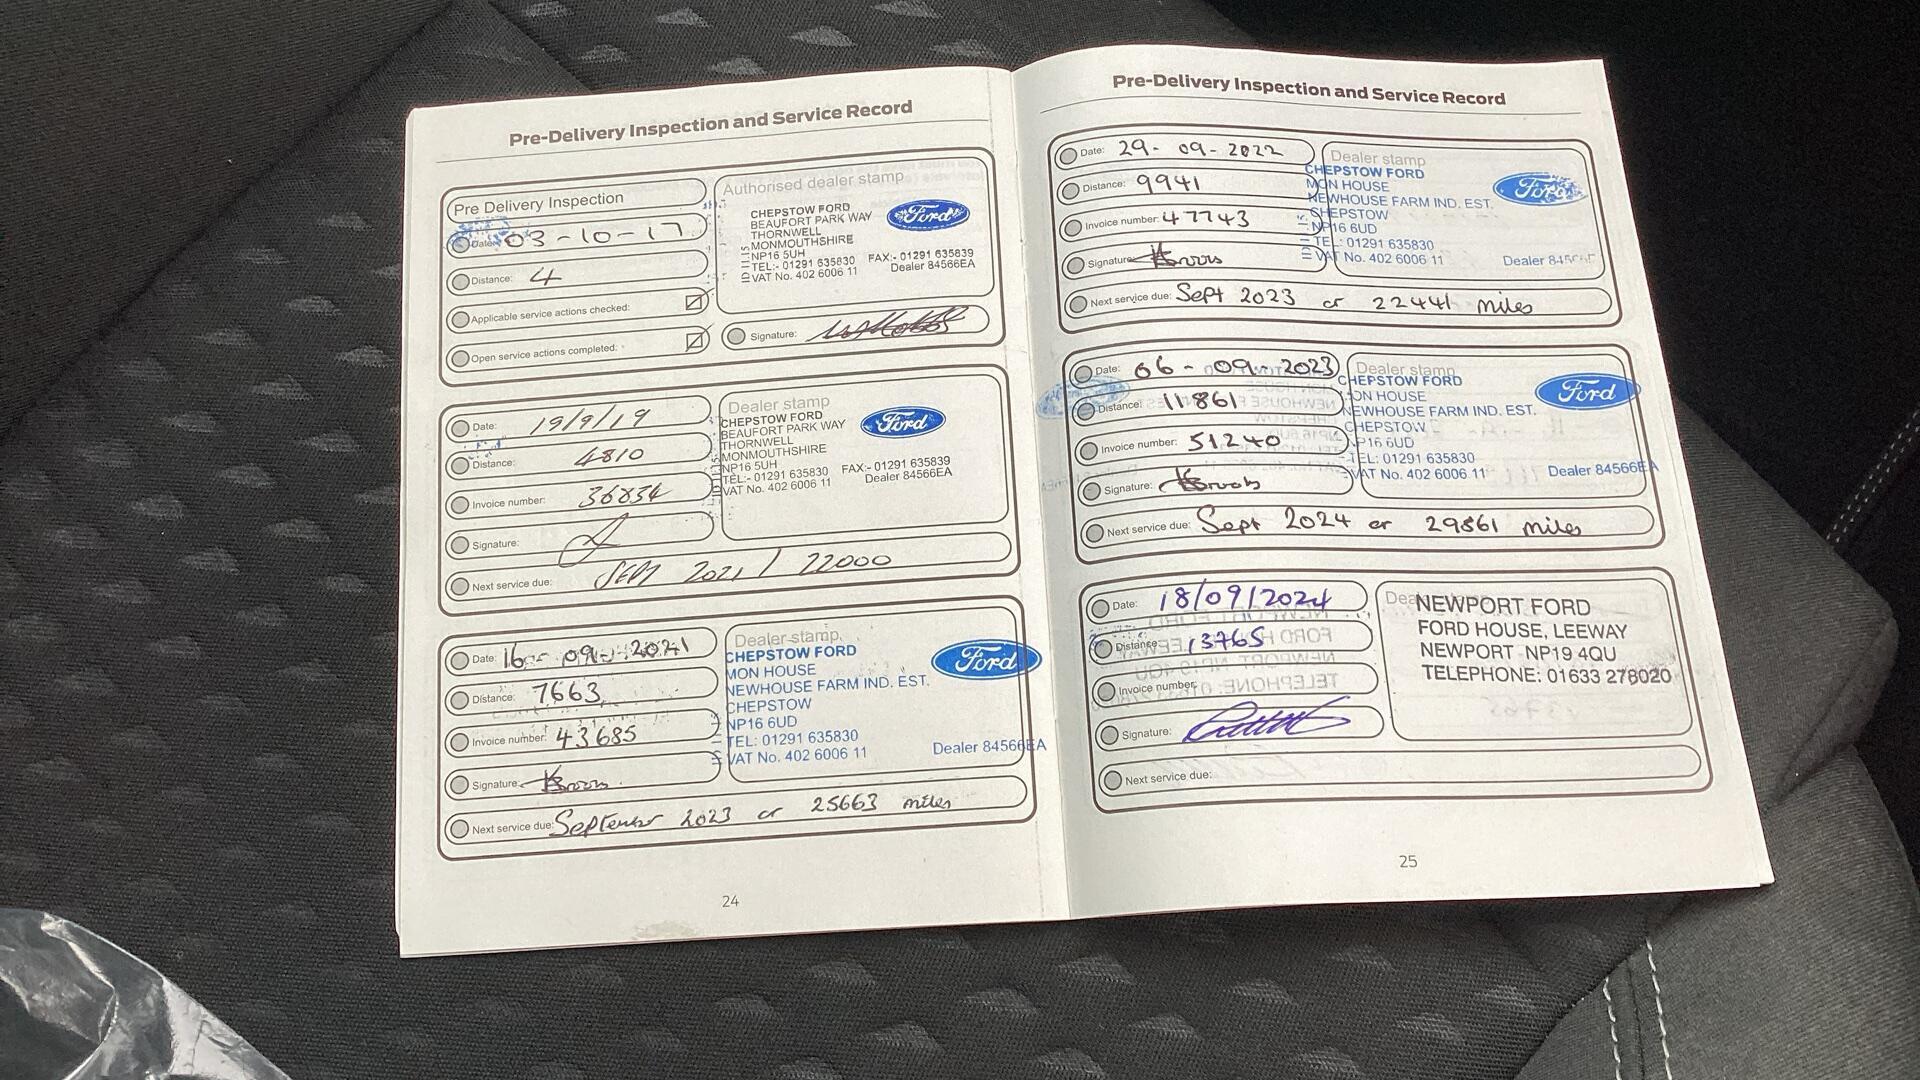 Pre-Delivery Inspection and Service Record
Pre Delivery Inspection
Date: 03-10-17
Distance: 4
Applicable service actions checked:
Open service actions completed:
Authorised dealer stamp
CHEPSTOW FORD
BEAUFORT PARK WAY
THORNWELL
MONMOUTHSHIRE
NP16 5UH
TEL:- 01291 635830 FAX:- 01291 635839
VAT No. 402 6006 11 Dealer 84566EA
Ford
Signature:
Date: 19/9/19
Distance: 4810
Invoice number: 36834
Signature:
Next service due: SEPT 2021 / 22000
Dealer stamp
CHEPSTOW FORD
BEAUFORT PARK WAY
THORNWELL
MONMOUTHSHIRE
NP16 5UH
TEL:- 01291 635830 FAX:- 01291 635839
VAT No. 402 6006 11 Dealer 84566EA
Ford
Date: 16-09-2021
Distance: 7663
Invoice number: 43685
Signature:
Next service due: September 2023 or 25663 miles
Dealer stamp
CHEPSTOW FORD
MON HOUSE
NEWHOUSE FARM IND. EST.
CHEPSTOW
NP16 6UD
TEL: 01291 635830
VAT No. 402 6006 11 Dealer 84566EA
Ford
24
Pre-Delivery Inspection and Service Record
Date: 29-09-2022
Distance: 9941
Invoice number: 47743
Signature:
Next service due: Sept 2023 or 22441 miles
Dealer stamp
CHEPSTOW FORD
MON HOUSE
NEWHOUSE FARM IND. EST.
CHEPSTOW
NP16 6UD
TEL: 01291 635830
VAT No. 402 6006 11 Dealer
Ford
Date: 06-09-2023
Distance: 11861
Invoice number: 51240
Signature:
Next service due: Sept 2024 or 29861 miles
Dealer stamp
CHEPSTOW FORD
MON HOUSE
NEWHOUSE FARM IND. EST.
CHEPSTOW
NP16 6UD
TEL: 01291 635830
VAT No. 402 6006 11 Dealer 84566EA
Ford
Date: 18/09/2024
Distance: 13765
Invoice number:
Signature:
Next service due:
NEWPORT FORD
FORD HOUSE, LEEWAY
NEWPORT NP19 4QU
TELEPHONE: 01633 278020
25